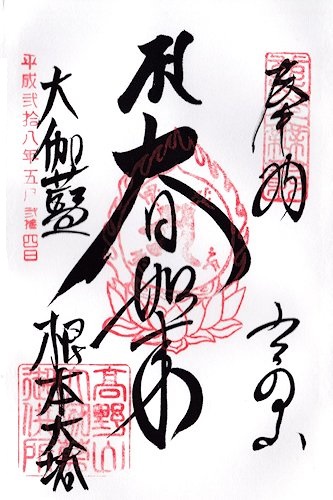 奉納
高の山
大日如来
大伽藍
根本大塔
平成弐拾八年五月弐拾四日
高野山
大伽藍
御供所